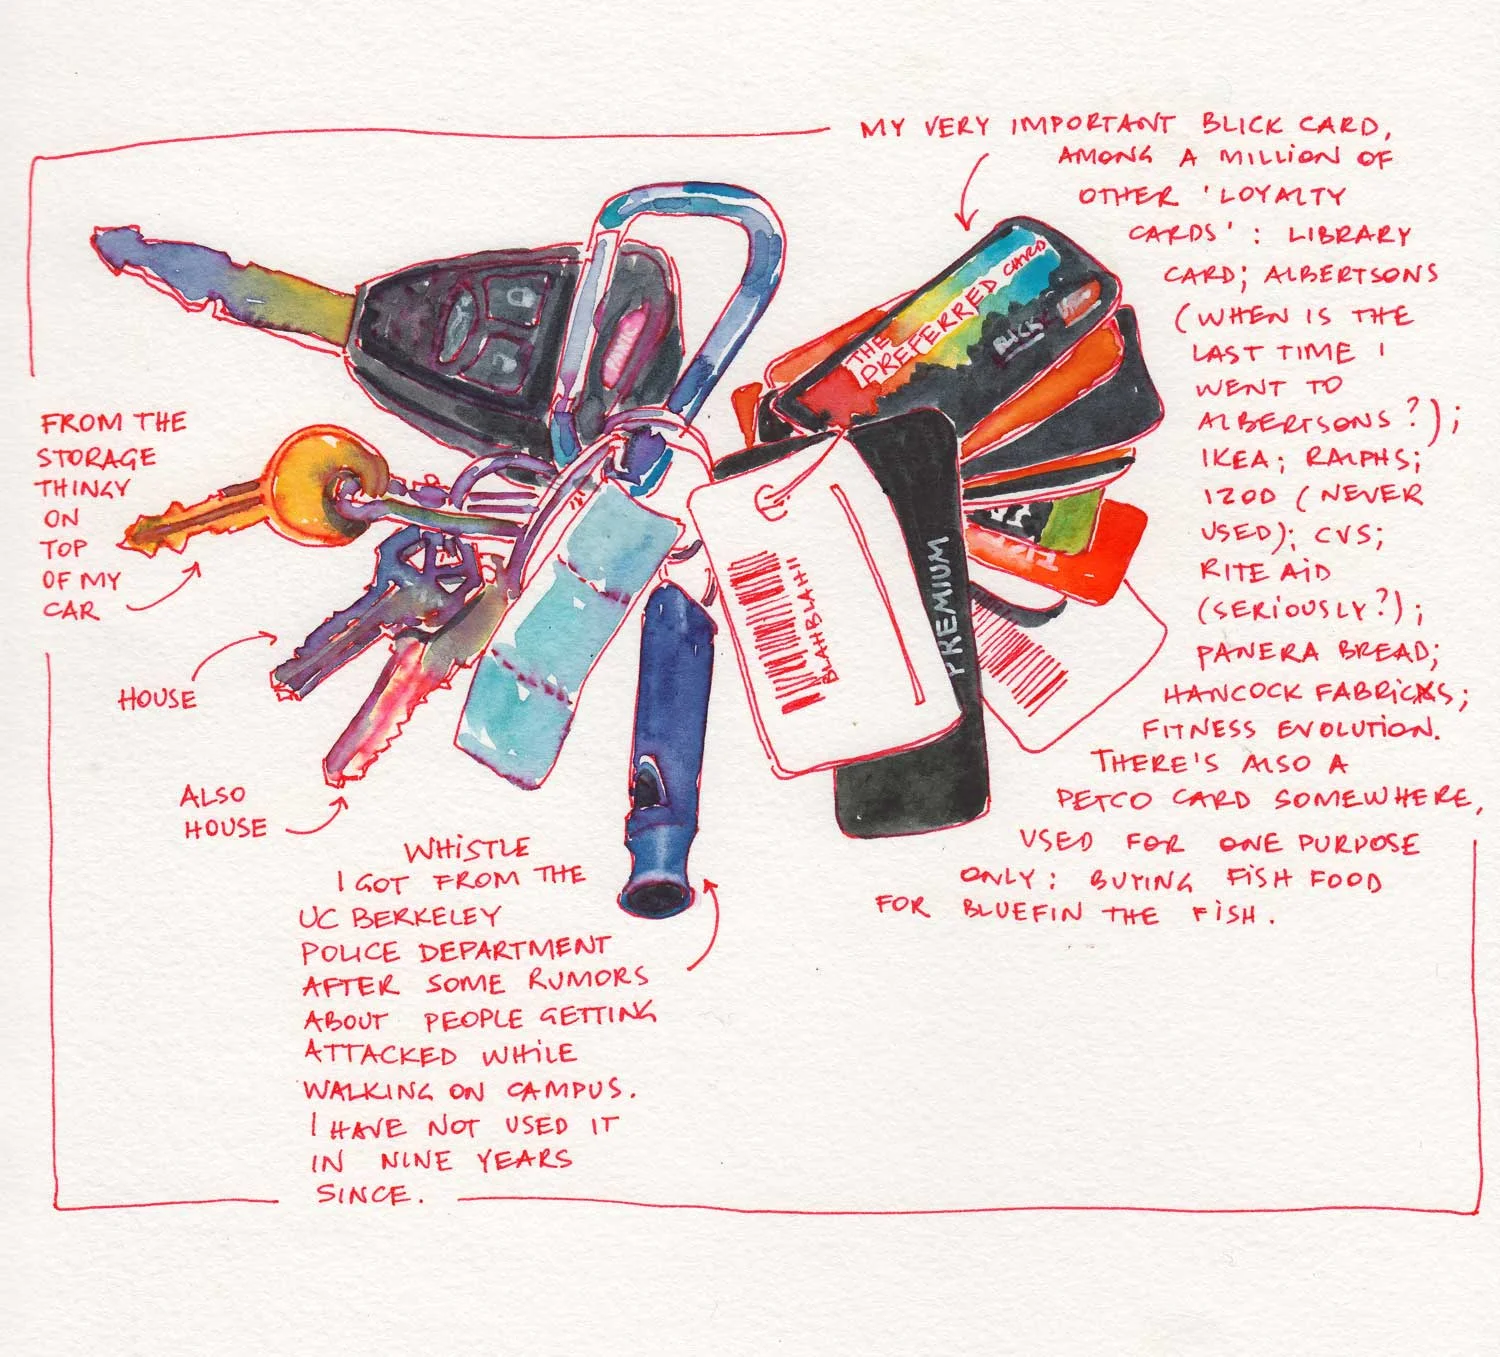 MY VERY IMPORTANT BLICK CARD,
AMONG A MILLION OF
OTHER 'LOYALTY
CARDS': LIBRARY
CARD; ALBERTSONS
(WHEN IS THE
LAST TIME I
WENT TO
ALBERTSONS?);
IKEA; RALPHS;
IZOD (NEVER
USED); CVS;
RITE AID
(SERIOUSLY?);
PANERA BREAD;
HANCOCK FABRICS;
FITNESS EVOLUTION.
THERE'S ALSO A
PETCO CARD SOMEWHERE,
USED FOR ONE PURPOSE
ONLY: BUYING FISH FOOD
FOR BLUEFIN THE FISH.
THE
PREFERRED CARD
BLICK
PREMIUM
BLAHBLAH11
FROM THE
STORAGE
THINGY
ON
TOP
OF MY
CAR
HOUSE
ALSO
HOUSE
WHISTLE
I GOT FROM THE
UC BERKELEY
POLICE DEPARTMENT
AFTER SOME RUMORS
ABOUT PEOPLE GETTING
ATTACKED WHILE
WALKING ON CAMPUS.
I HAVE NOT USED IT
IN NINE YEARS
SINCE.